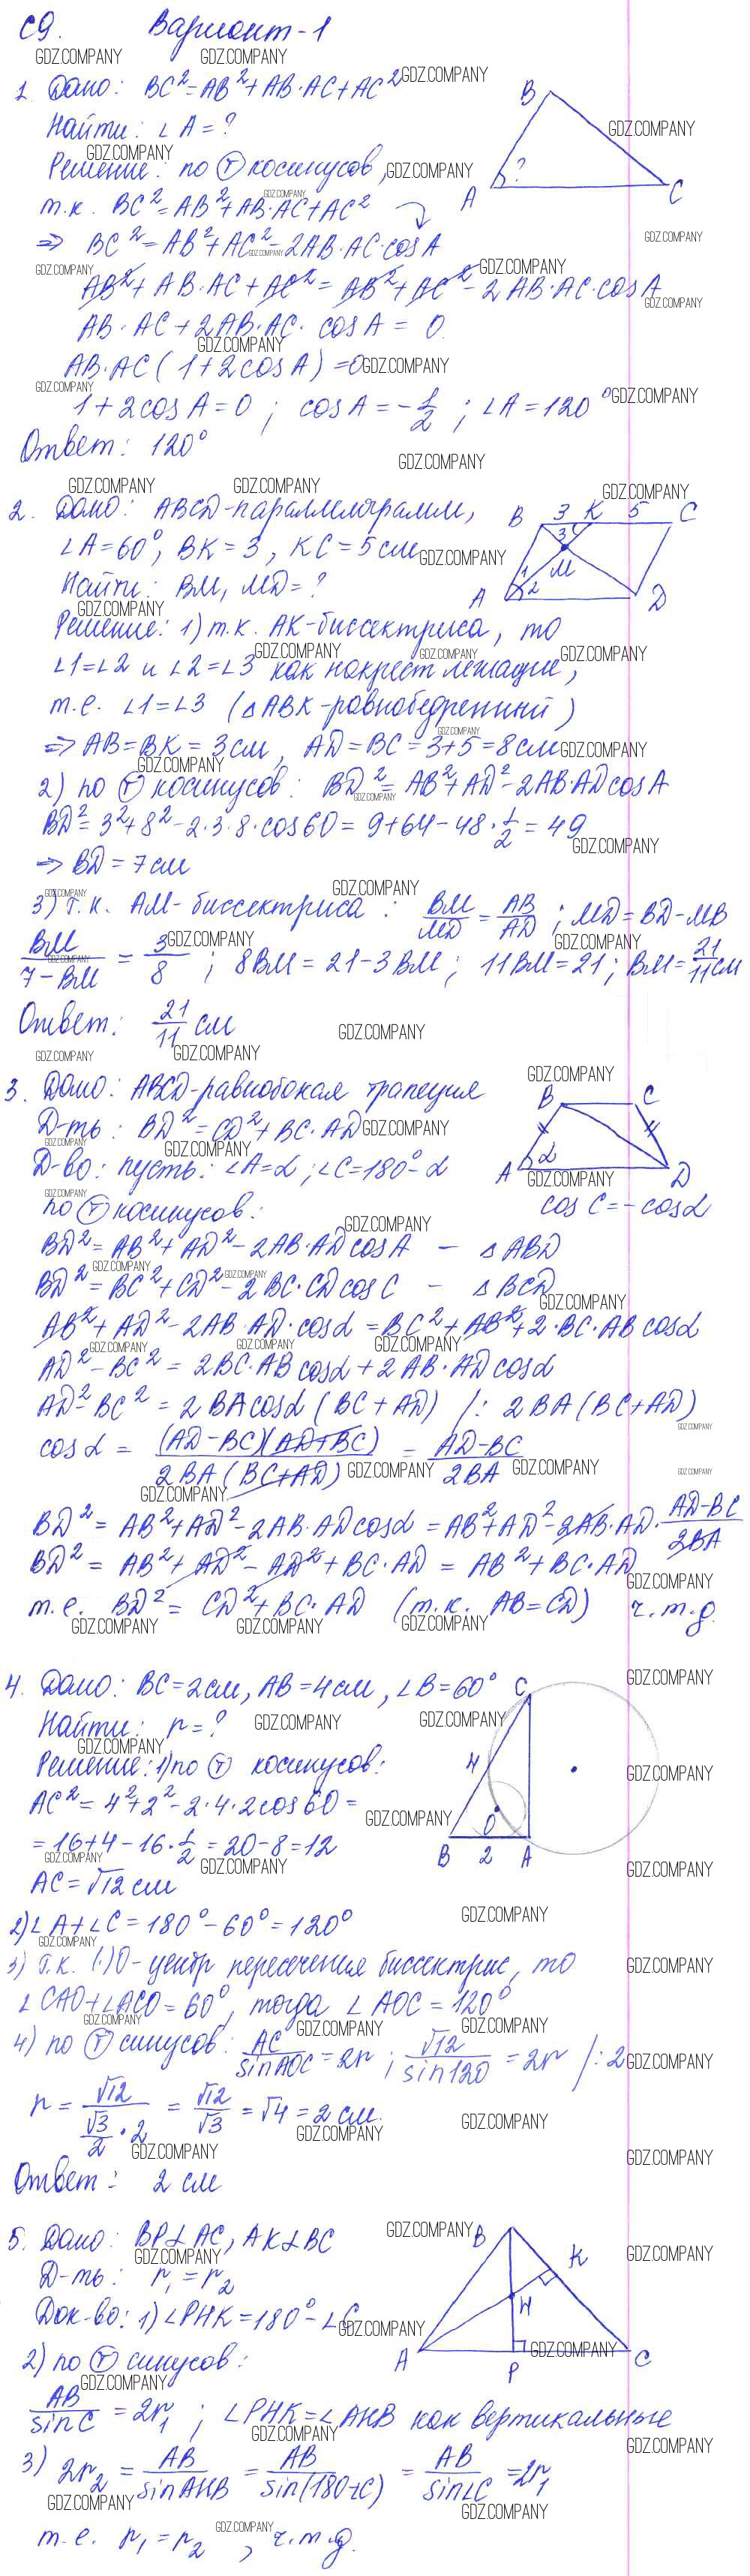 С9. Вариант-1
1. Дано: BC²=AB²+AB·AC+AC²
Найти: ∠A=?
Решение: по Ⓣ косинусов,
т.к. BC²=AB²+AB·AC+AC²
⇒ BC²=AB²+AC²-2AB·AC·cosA
AB²+AB·AC+AC²=AB²+AC²-2AB·AC·cosA
AB·AC+2AB·AC·cosA=0
AB·AC(1+2cosA)=0
1+2cosA=0; cosA=-1/2; ∠A=120°
Ответ: 120°
B
A
?
C
2. Дано: ABCD-параллелограмм,
∠A=60°, BK=3, KC=5см
Найти: BM, MD=?
Решение: 1) т.к. AK-биссектриса, то
∠1=∠2 и ∠2=∠3 как накрест лежащие,
т.е. ∠1=∠3 (△ABK-равнобедренный)
⇒ AB=BK=3см, AD=BC=3+5=8см
2) по Ⓣ косинусов: BD²=AB²+AD²-2AB·ADcosA
BD²=3²+8²-2·3·8·cos60=9+64-48·1/2=49
⇒ BD=7см
3) т.к. AM-биссектриса: BM/MD=AB/AD; MD=BD-MB
BM/7-BM=3/8; 8BM=21-3BM; 11BM=21; BM=21/11см
Ответ: 21/11 см
B 3 K 5 C
3
1 M
A 2 D
3. Дано: ABCD-равнобокая трапеция
Д-ть: BD²=CD²+BC·AD
Д-во: пусть: ∠A=α; ∠C=180°-α
по Ⓣ косинусов: cosC=-cosα
BD²=AB²+AD²-2AB·ADcosA - △ABD
BD²=BC²+CD²-2BC·CDcosC - △BCD
AB²+AD²-2AB·AD·cosα=BC²+AB²+2·BC·ABcosα
AD²-BC²=2BC·ABcosα+2AB·ADcosα
AD²-BC²=2BAcosα(BC+AD) /:2BA(BC+AD)
cosα=(AD-BC)(AD+BC)/2BA(BC+AD)=AD-BC/2BA
BD²=AB²+AD²-2AB·ADcosα=AB²+AD²-2AB·AD·AD-BC/2BA
BD²=AB²+AD²-AD²+BC·AD=AB²+BC·AD
т.е. BD²=CD²+BC·AD (т.к. AB=CD) ч.т.д.
B C
A α D
4. Дано: BC=2см, AB=4см, ∠B=60°
Найти: r=?
Решение: 1) по Ⓣ косинусов:
AC²=4²+2²-2·4·2cos60=
=16+4-16·1/2=20-8=12
AC=√12см
2) ∠A+∠C=180°-60°=120°
3) т.к. (·)O-центр пересечения биссектрис, то
∠CAO+∠ACO=60°, тогда ∠AOC=120°
4) по Ⓣ синусов: AC/sinAOC=2r; √12/sin120=2r /:2
r=√12/√3/2·2=√12/√3=√4=2см.
Ответ: 2 см
C
4
O
B 2 A
5. Дано: BP⊥AC, AK⊥BC
Д-ть: r₁=r₂
Док-во: 1) ∠PHK=180°-∠C
2) по Ⓣ синусов:
AB/sinC=2r₁; ∠PHK=∠AHB как вертикальные
3) 2r₂=AB/sinAHB=AB/sin(180-∠C)=AB/sin∠C=2r₁
т.е. r₁=r₂, ч.т.д.
B
K
H
A P C
GDZ.COMPANY